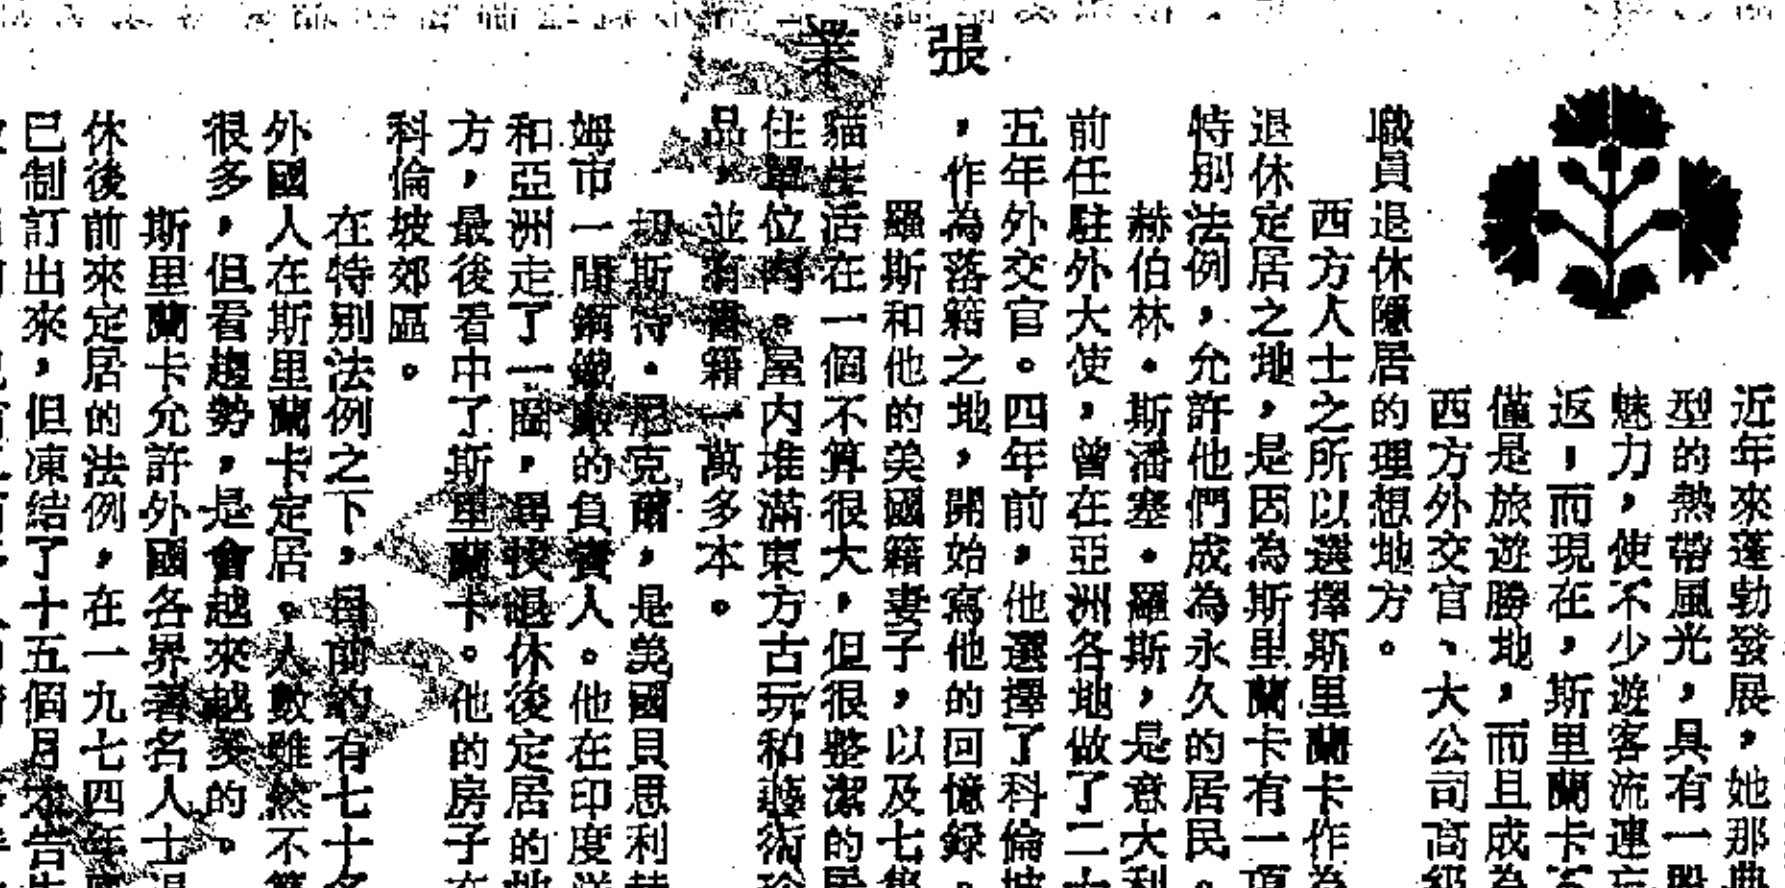 張業
近年來蓬勃發展，她那典
型的熱帶風光，具有一股
魅力，使不少遊客流連忘
返，而現在，斯里蘭卡不
僅是旅遊勝地，而且成為
西方外交官、大公司高級
職員退休隱居的理想地方。
西方人士之所以選擇斯里蘭卡作為
退休定居之地，是因為斯里蘭卡有一項
特別法例，允許他們成為永久的居民。
赫伯林．斯潘塞．羅斯，是意大利
前任駐外大使，曾在亞洲各地做了二十
五年外交官。四年前，他選擇了科倫坡
，作為落籍之地，開始寫他的回憶録。
羅斯和他的美國籍妻子，以及七隻
貓生活在一個不算很大，但很整潔的居
住單位內。屋內堆滿東方古玩和藝術珍
品，並有書籍一萬多本。
切斯特．尼克爾，是美國貝思利赫
姆市一間鋼鐵廠的負責人。他在印度洋
和亞洲走了一圈，尋找退休後定居的地
方，最後看中了斯里蘭卡。他的房子在
科倫坡郊區。
在特別法例之下，目前約有七十名
外國人在斯里蘭卡定居。人數雖然不算
很多，但看趨勢，是會越來越多的。
斯里蘭卡允許外國各界著名人士退
休後前來定居的法例，在一九七四年
已制訂出來，但凍結了十五個月才告